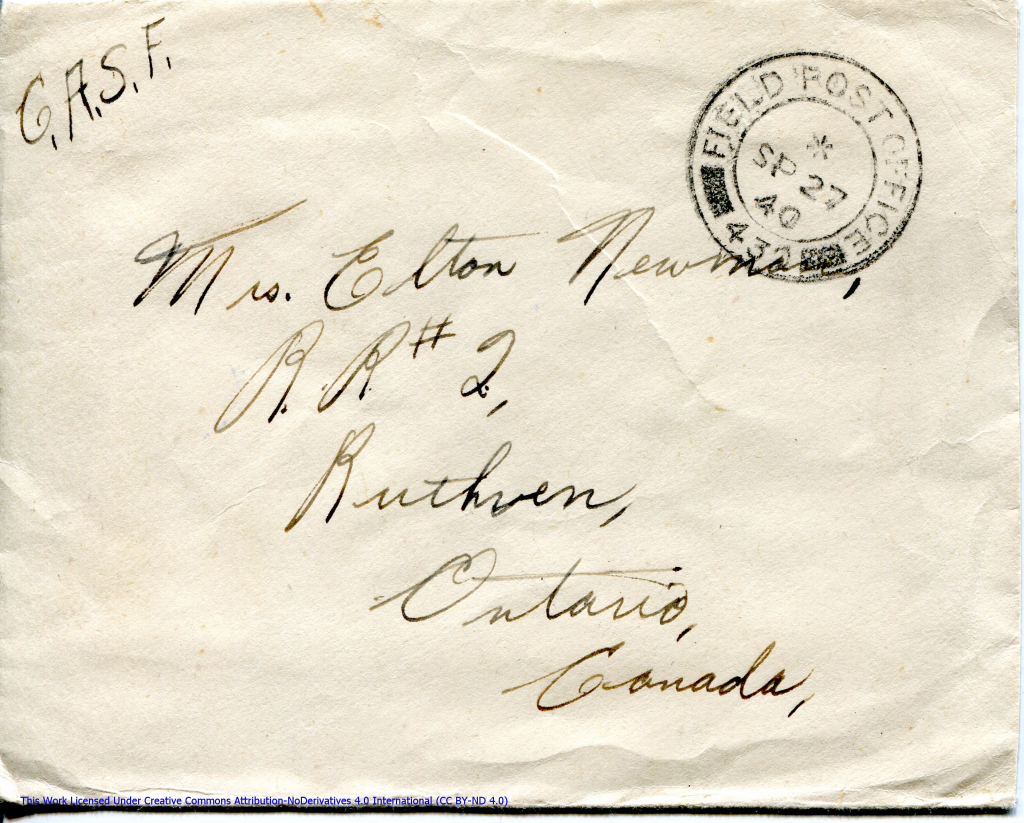 C.A.S.F.
FIELD POST OFFICE
*
SP 27
40
Mrs. Elton Newman,
R.R # 2,
Ruthven,
Ontario,
Canada,
This Work Licensed Under Creative Commons Attribution-NoDerivatives 4.0 International (CC BY-ND 4.0)